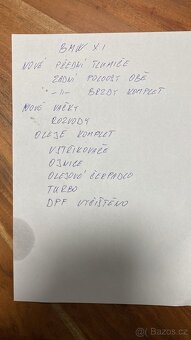 BMW X1
NOVÉ PŘEDNÍ TLUMIČE
ZADNÍ POLOOSY OBĚ
-||- BRZDY KOMPLET
NOVÉ VAČKY
ROZVODY
OLEJE KOMPLET
VSTŘIKOVAČE
OJNICE
OLEJOVÉ ČERPADLO
TURBO
DPF VYČIŠTĚNO
Bazoš.cz